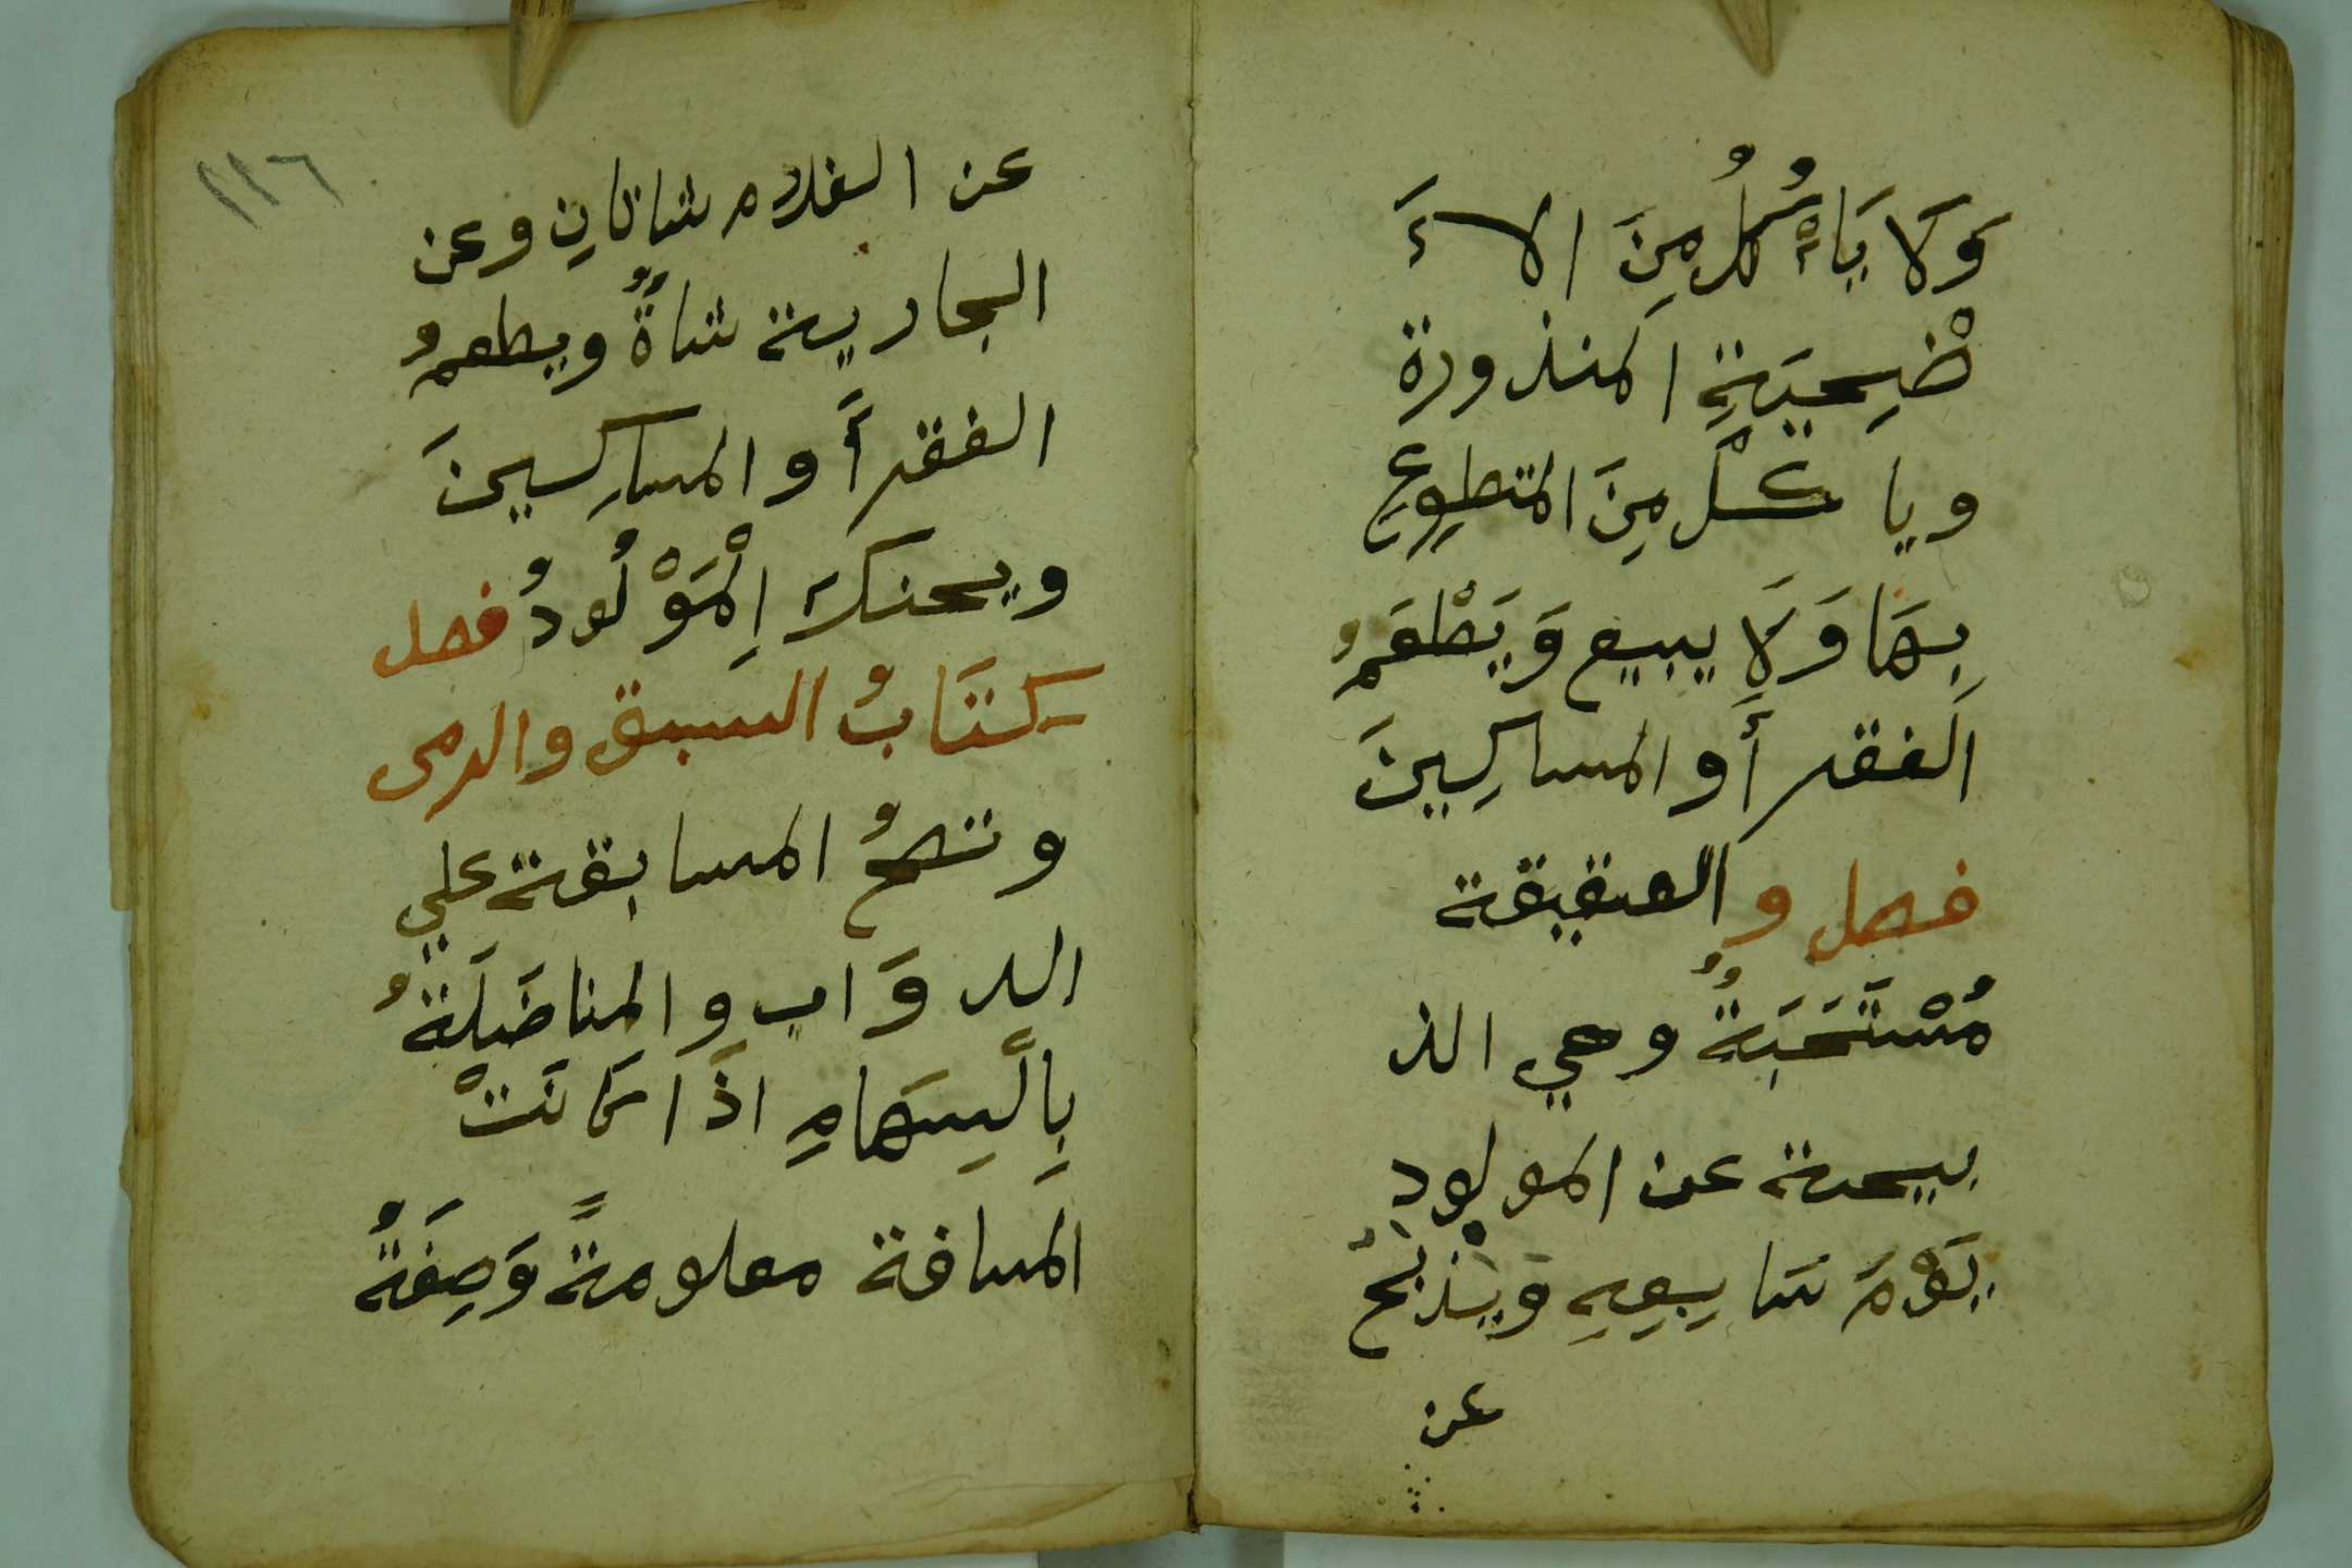 وَلَا يَاءْكُلُ مِنَ الاءَ
ضْحِيَةِ المنذورة
وياكلْ مِنَ المتطوِعِ
بِهَا وَلَا يبيع وَيَطْعَمُ
الفقرأَ والمساكِينَ
فصل والعقيقة
مُسْتَحَبَةٌ وهي الذ
بيحة عن المولودِ
يَوْمَ سَابِعِهِ ويذْبَحُ
عن
١١٦
عن الغلام شاتانِ وعن
الجارية شاةٌ ويطعمُ
الفقرأَ والمسَاكِينَ
ويحنك اِلْمَوْلُودُ فصل
كتَابُ السبق والرمى
وتصحُ المسابقة علي
الدوَاب والمناضَلَةُ
بِالَّسِهَامِ اذَا كَانَتْ
المسافة معلومةً وَصِفَةُ